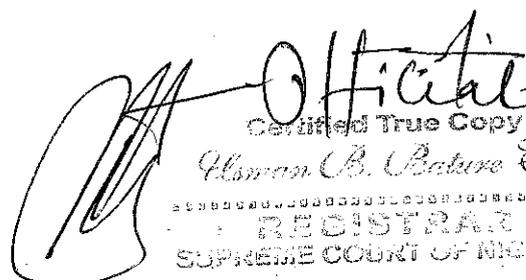 Official
Certified True Copy
Usman B. Bature
REGISTRAR
SUPREME COURT OF NIG